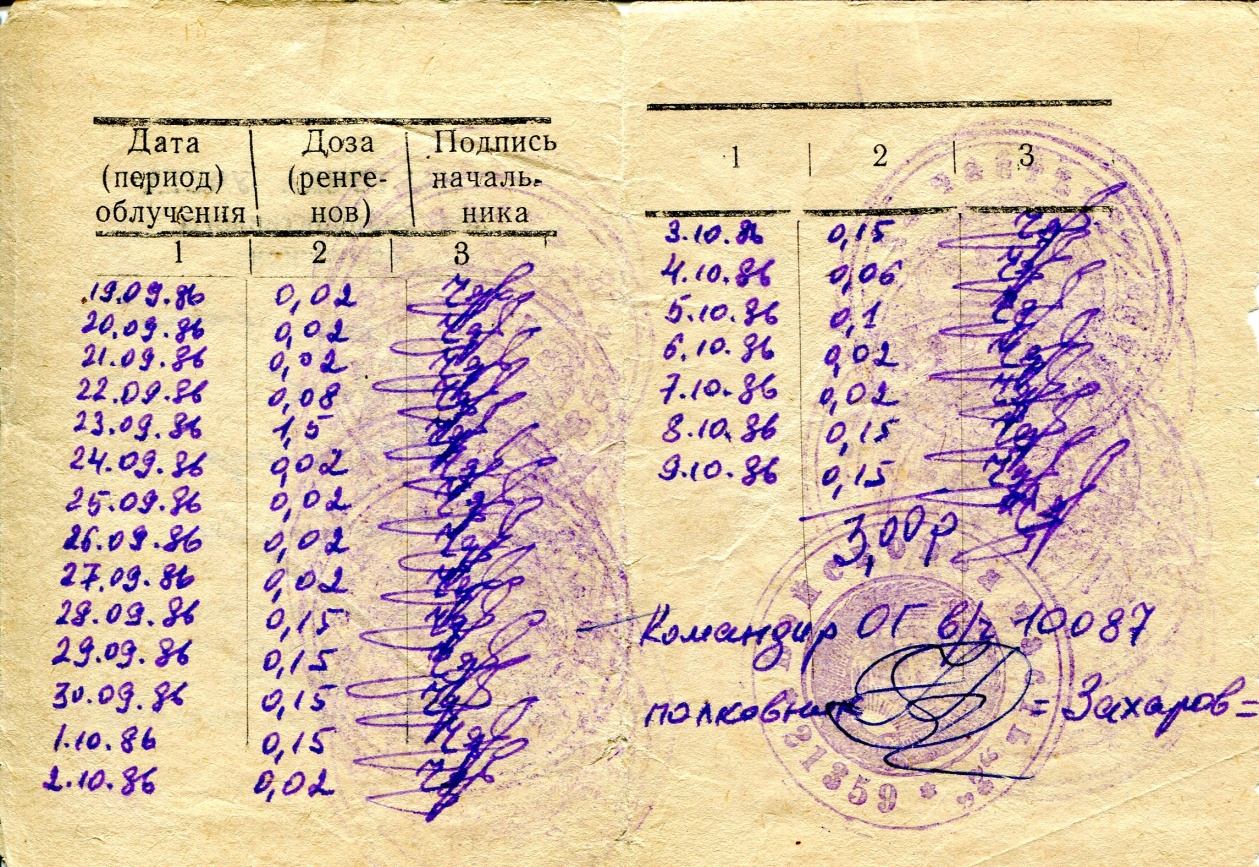 Дата (период) облучения | Доза (ренгенов) | Подпись начальника
1 | 2 | 3
19.09.86 0,02
20.09.86 0,02
21.09.86 0,02
22.09.86 0,08
23.09.86 1,5
24.09.86 0,02
25.09.86 0,02
26.09.86 0,02
27.09.86 0,02
28.09.86 0,15
29.09.86 0,15
30.09.86 0,15
1.10.86 0,15
2.10.86 0,02
1 | 2 | 3
3.10.86 0,15
4.10.86 0,06
5.10.86 0,1
6.10.86 0,02
7.10.86 0,02
8.10.86 0,15
9.10.86 0,15
3,00 р
Командир ОГ в/ч 10087
полковник = Захаров =
21359 *